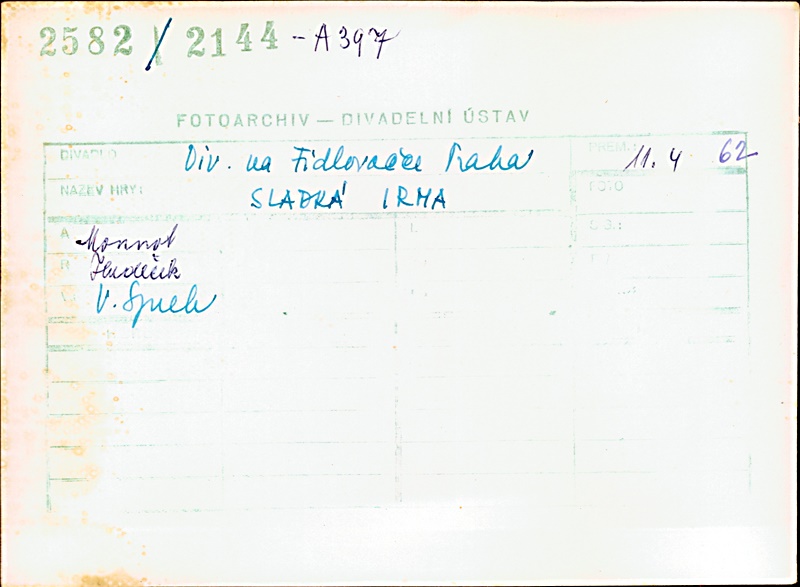 2582 / 2144 - A 397
FOTOARCHIV — DIVADELNÍ ÚSTAV
DIVADLO Div. na Fidlovačce Praha PREM.: 11. 4 62
NÁZEV HRY: SLADKÁ IRMA FOTO
A Monnot
R Hudeček
V. Špidla